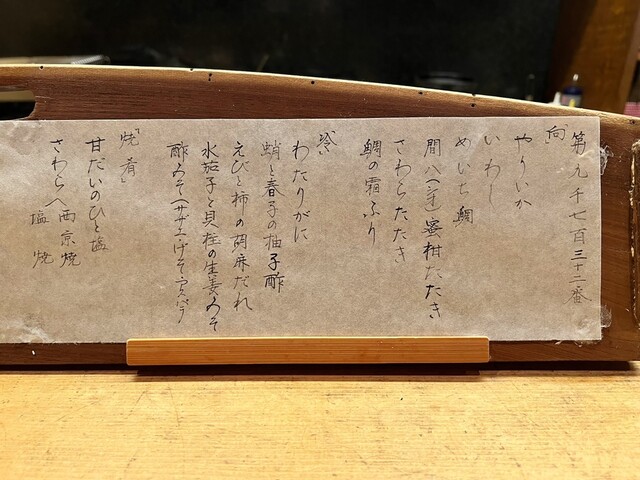 第九千七百三十二番
「向」
やりいか
いわし
めいち鯛
間八(シオ)蜜柑たたき
さわらたたき
鯛の霜ふり
「冷」
わたりがに
蛸と春子の柚子酢
えびと柿の胡麻だれ
水茄子と貝柱の生姜みそ
酢みそ(サザエ
「焼肴」
甘だいのひと塩
さわらへ西京焼
塩焼